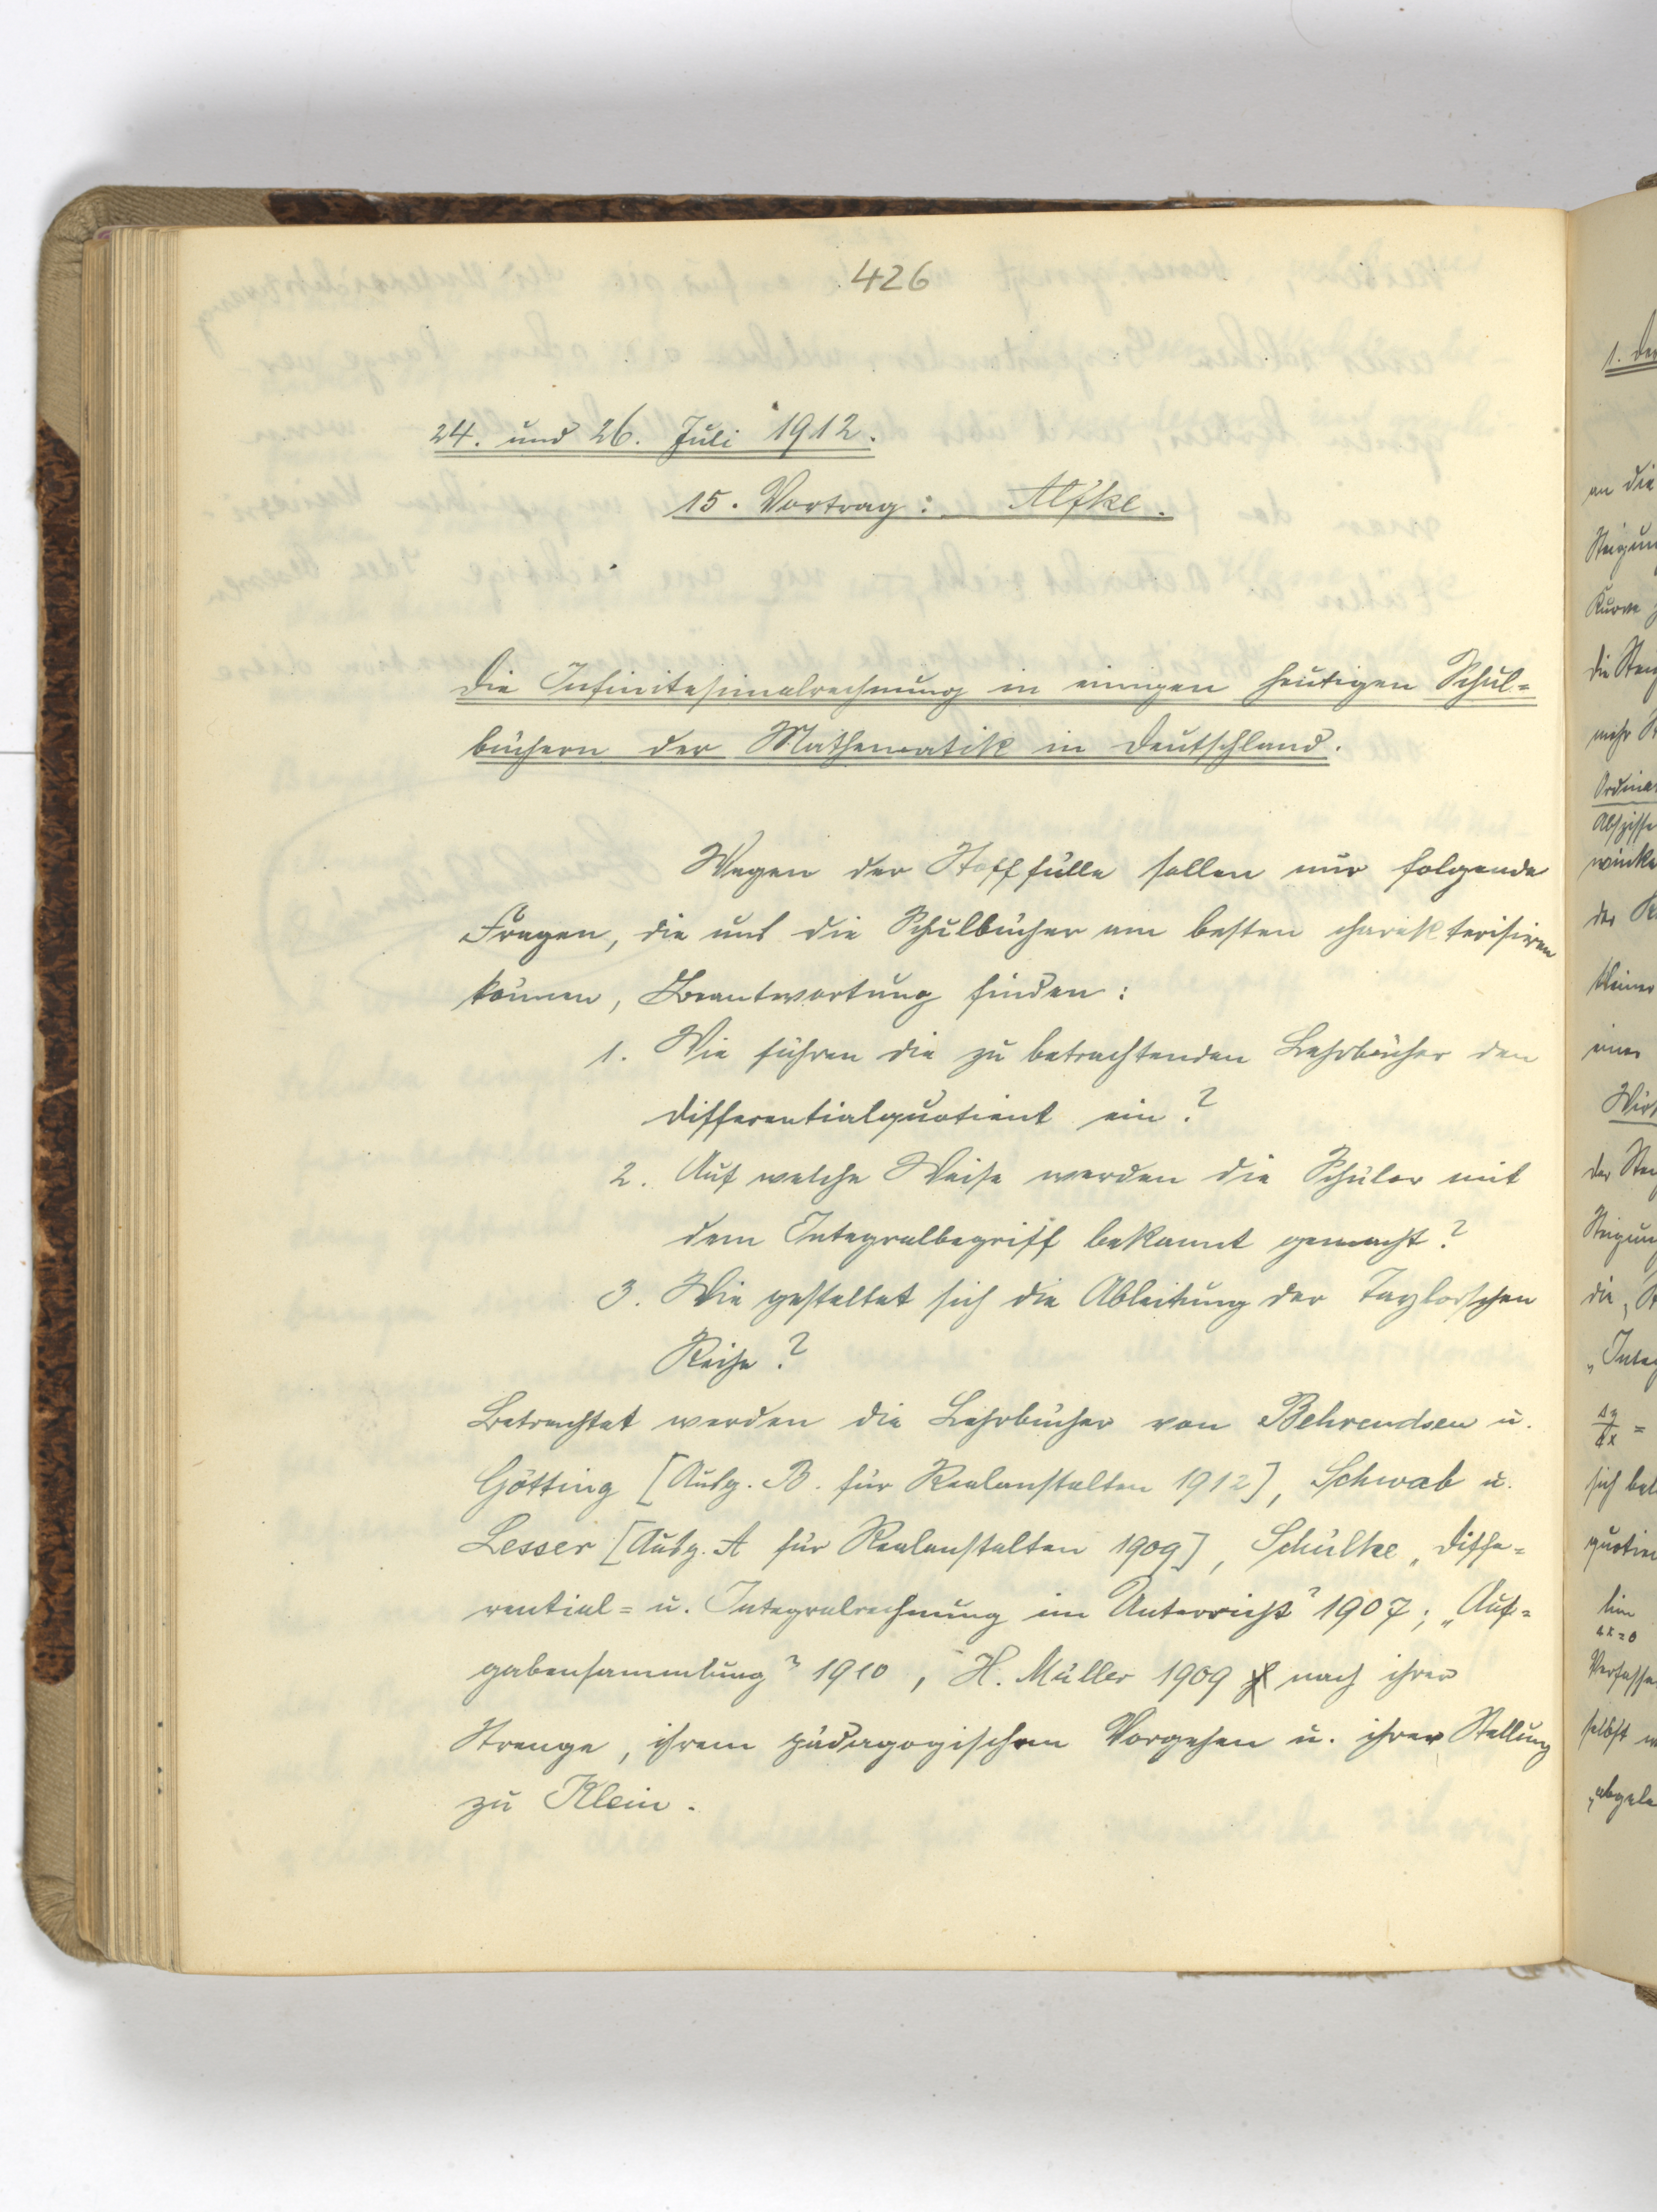 426
24. und 26. Juli 1912.
15. Vortrag: Alfke.
Die Infinitesimalrechnung in einigen heutigen Schul=
büchern der Mathematik in Deutschland.
Wegen der Stofffülle sollen nur folgende
Fragen, die uns die Schulbücher am besten charakterisiren
können, Beantwortung finden:
1. Wie führen die zu betrachtenden Lehrbücher den
Differentialquotient ein?
2. Auf welche Weise werden die Schüler mit
dem Integralbegriff bekannt gemacht?
3. Wie gestaltet sich die Ableitung der Taylorschen
Reihe?
Betrachtet werden die Lehrbücher von Behrendsen u.
Götting [Ausg. B. für Realanstalten 1912], Schwab u.
Lesser [Ausg. A für Realanstalten 1909], Schülke „Diffe=
rential= u. Integralrechnung im Unterricht" 1907; „Auf=
gabensammlung" 1910, H. Müller 1909 nach ihrer
Strenge, ihrem pädagogischen Vorgehen u. ihrer Stellung
zu Klein.
1. Der
an die
Steigun
Kurve
die Stei
mehr
Ordina
Abszisse
winke
der
kleiner
einer
Wir
der Stei
Steigun
die
„Integ
Δy/Δx =
sich bei
quotien
lim
Δx=0
Verfasse
selbst
„abgele